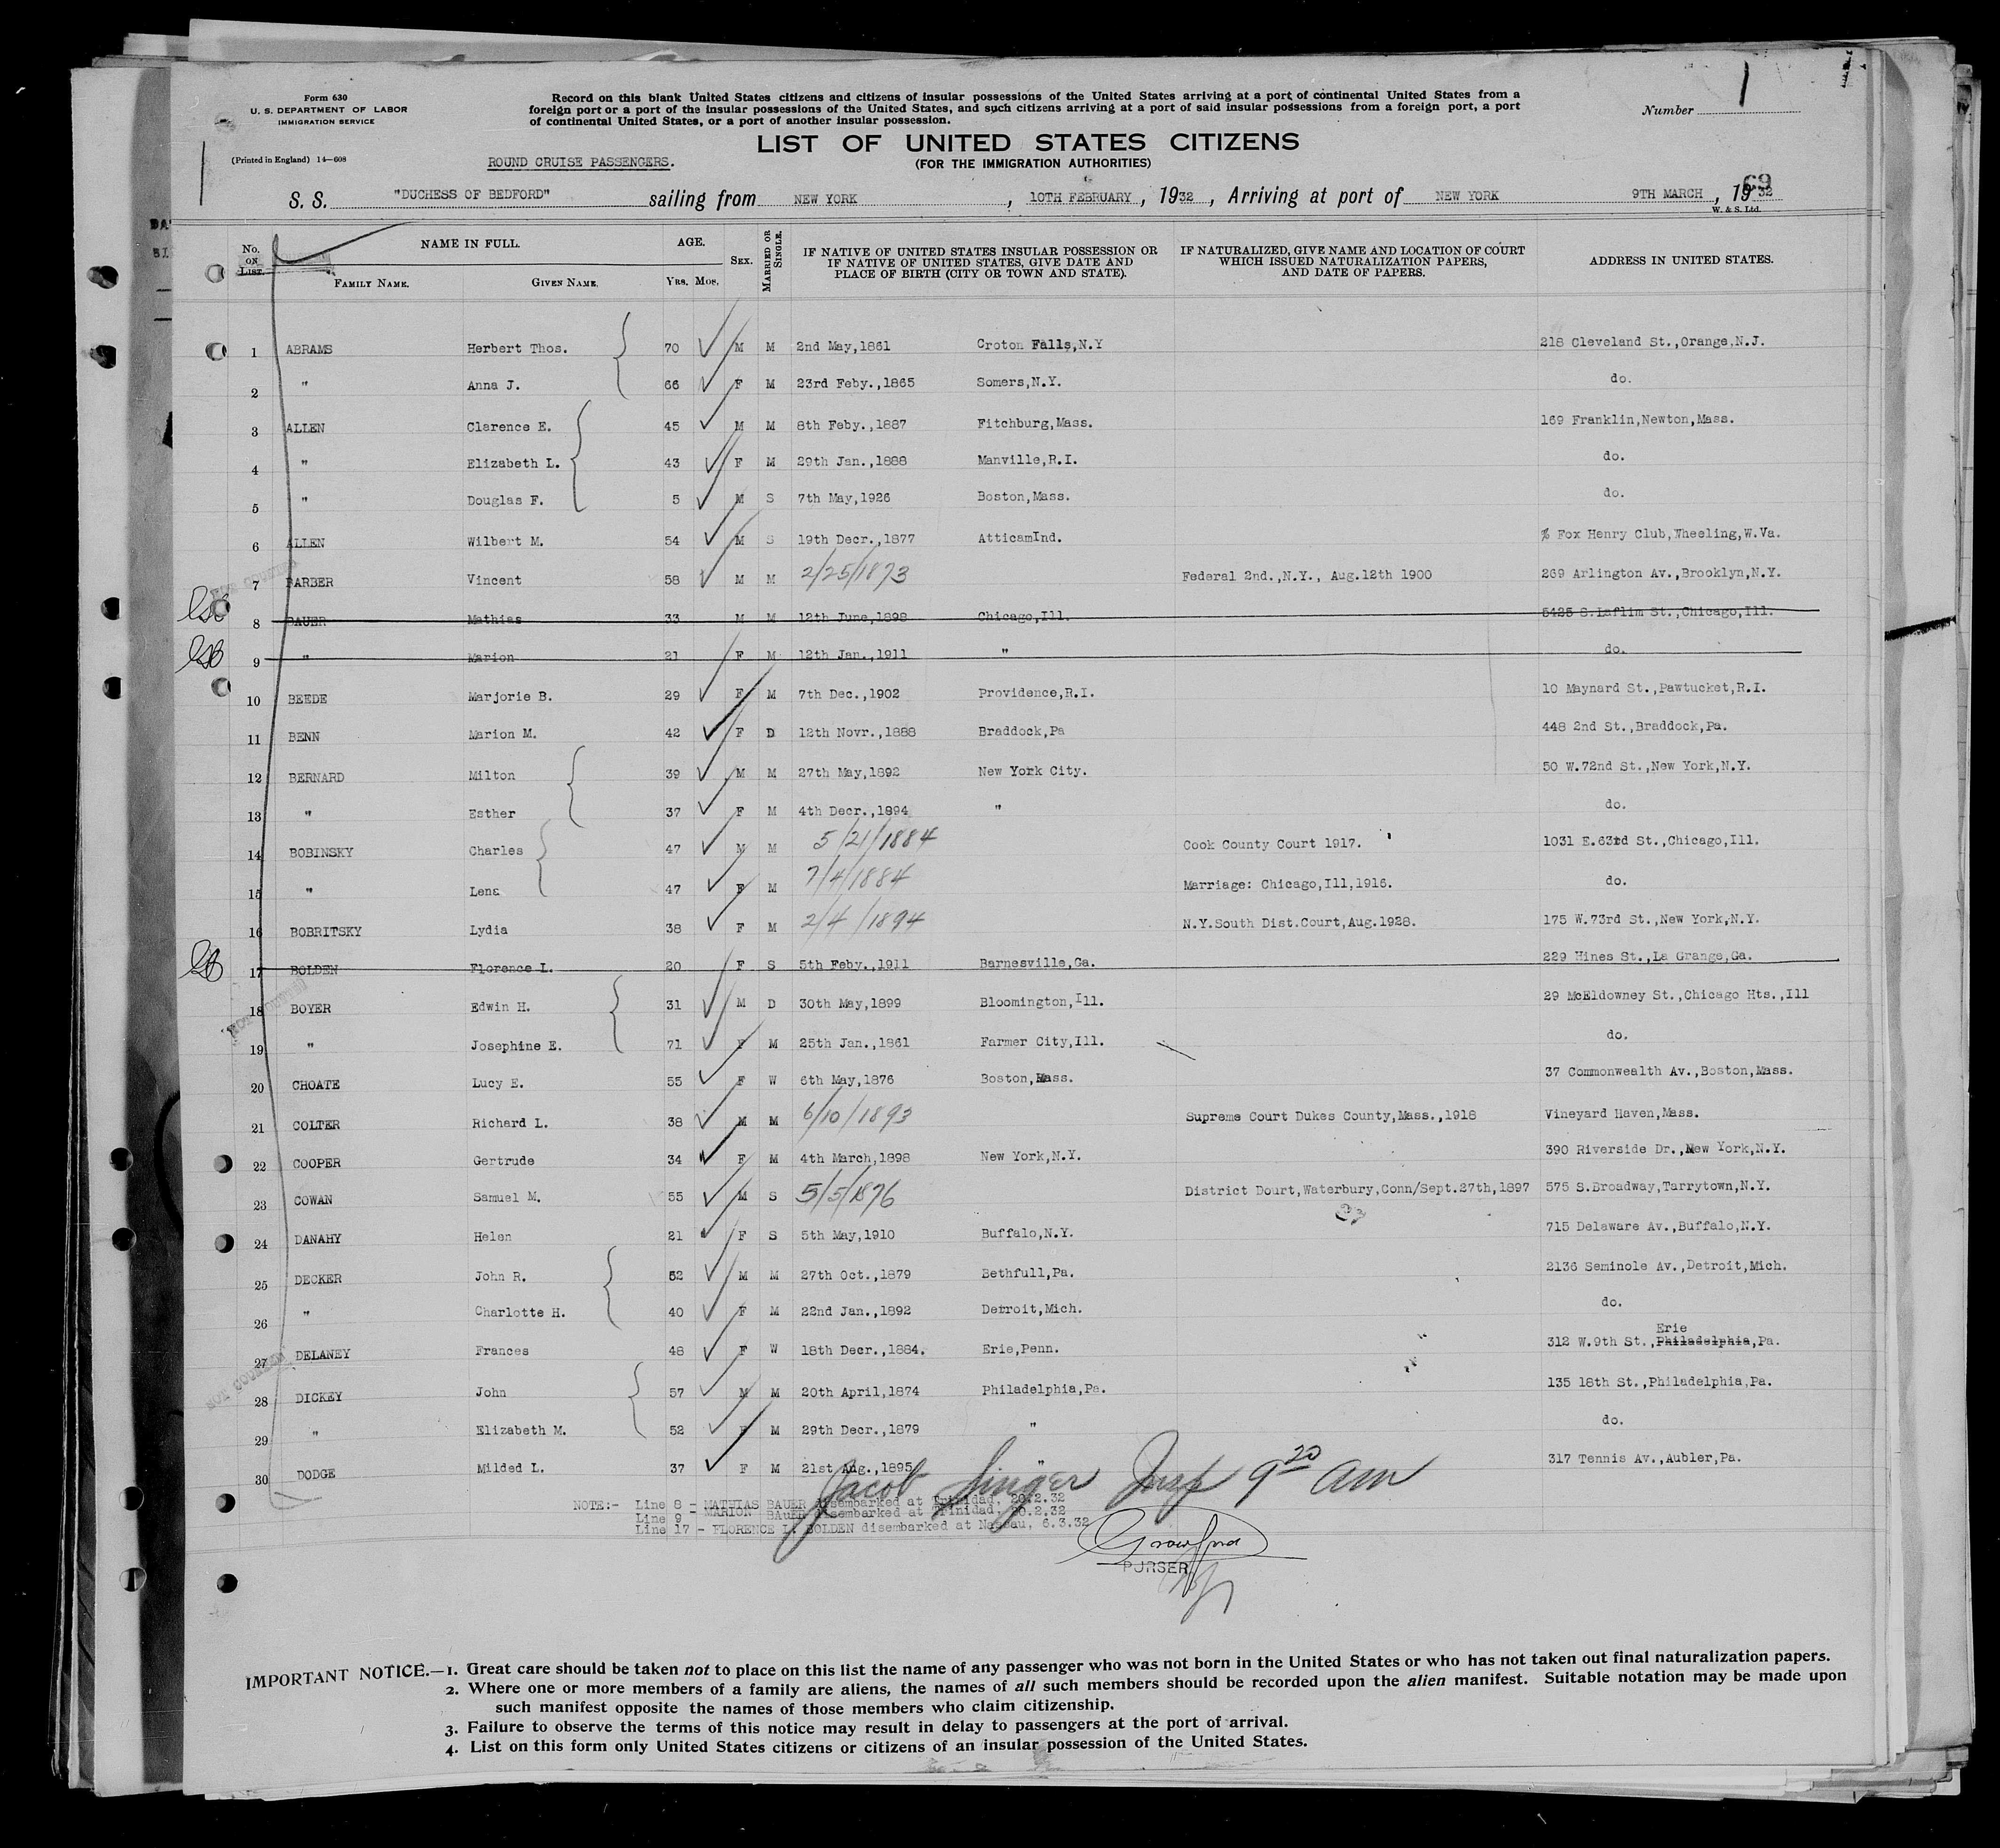 Form 630
U. S. DEPARTMENT OF LABOR
IMMIGRATION SERVICE
(Printed in England) 14—608
Record on this blank United States citizens and citizens of insular possessions of the United States arriving at a port of continental United States from a
foreign port or a port of the insular possessions of the United States, and such citizens arriving at a port of said insular possessions from a foreign port, a port
of continental United States, or a port of another insular possession.
Number 1
LIST OF UNITED STATES CITIZENS
(FOR THE IMMIGRATION AUTHORITIES)
ROUND CRUISE PASSENGERS.
69
S. S. "DUCHESS OF BEDFORD" sailing from NEW YORK, 10TH FEBRUARY, 1932, Arriving at port of NEW YORK 9TH MARCH, 1932
W. & S. Ltd.
No. ON LIST. NAME IN FULL. FAMILY NAME. GIVEN NAME. AGE. YRS. MOS. SEX. MARRIED OR SINGLE. IF NATIVE OF UNITED STATES INSULAR POSSESSION OR IF NATIVE OF UNITED STATES, GIVE DATE AND PLACE OF BIRTH (CITY OR TOWN AND STATE). IF NATURALIZED, GIVE NAME AND LOCATION OF COURT WHICH ISSUED NATURALIZATION PAPERS, AND DATE OF PAPERS. ADDRESS IN UNITED STATES.
1 ABRAMS Herbert Thos. 70 M M 2nd May,1861 Croton Falls,N.Y 218 Cleveland St.,Orange,N.J.
2 " Anna J. 66 F M 23rd Feby.,1865 Somers,N.Y. do.
3 ALLEN Clarence E. 45 M M 8th Feby.,1887 Fitchburg,Mass. 169 Franklin,Newton,Mass.
4 " Elizabeth L. 43 F M 29th Jan.,1888 Manville,R.I. do.
5 " Douglas F. 5 M S 7th May,1926 Boston,Mass. do.
6 ALLEN Wilbert M. 54 M S 19th Decr.,1877 AtticamInd. % Fox Henry Club,Wheeling,W.Va.
7 BARBER Vincent 58 M M 2/25/1873 Federal 2nd.,N.Y., Aug.12th 1900 269 Arlington Av.,Brooklyn,N.Y.
8 BAUER Mathias 33 M M 12th June,1898 Chicago,Ill. 5425 S.Laflim St.,Chicago,Ill.
9 " Marion 21 F M 12th Jan.,1911 " do.
10 BEEDE Marjorie B. 29 F M 7th Dec.,1902 Providence,R.I. 10 Maynard St.,Pawtucket,R.I.
11 BENN Marion M. 42 F D 12th Novr.,1888 Braddock,Pa 448 2nd St.,Braddock,Pa.
12 BERNARD Milton 39 M M 27th May,1892 New York City. 50 W.72nd St.,New York,N.Y.
13 " Esther 37 F M 4th Decr.,1894 " do.
14 BOBINSKY Charles 47 M M 5/21/1884 Cook County Court 1917. 1031 E.63rd St.,Chicago,Ill.
15 " Lena 47 F M 7/4/1884 Marriage: Chicago,Ill,1916. do.
16 BOBRITSKY Lydia 38 F M 2/4/1894 N.Y.South Dist.Court,Aug.1928. 175 W.73rd St.,New York,N.Y.
17 BOLDEN Florence L. 20 F S 5th Feby.,1911 Barnesville,Ga. 229 Hines St.,La Grange,Ga.
18 BOYER Edwin H. 31 M D 30th May,1899 Bloomington,Ill. 29 McEldowney St.,Chicago Hts.,Ill
19 " Josephine E. 71 F M 25th Jan.,1861 Farmer City,Ill. do.
20 CHOATE Lucy E. 55 F W 6th May,1876 Boston,Mass. 37 Commonwealth Av.,Boston,Mass.
21 COLTER Richard L. 38 M M 6/10/1893 Supreme Court Dukes County,Mass.,1918 Vineyard Haven,Mass.
22 COOPER Gertrude 34 F M 4th March,1898 New York,N.Y. 390 Riverside Dr.,New York,N.Y.
23 COWAN Samuel M. 55 M S 5/5/1876 District Dourt,Waterbury,Conn/Sept.27th,1897 575 S.Broadway,Tarrytown,N.Y.
24 DANAHY Helen 21 F S 5th May,1910 Buffalo,N.Y. 715 Delaware Av.,Buffalo,N.Y.
25 DECKER John R. 52 M M 27th Oct.,1879 Bethfull,Pa. 2136 Seminole Av.,Detroit,Mich.
26 " Charlotte H. 40 F M 22nd Jan.,1892 Detroit,Mich. do.
27 DELANEY Frances 48 F W 18th Decr.,1884. Erie,Penn. 312 W.9th St.,Philadelphia,Pa. Erie
28 DICKEY John 57 M M 20th April,1874 Philadelphia,Pa. 135 18th St.,Philadelphia,Pa.
29 " Elizabeth M. 52 F M 29th Decr.,1879 " do.
30 DODGE Milded L. 37 F M 21st Aug.,1895 " 317 Tennis Av.,Aubler,Pa.
Jacob Singer Insp 9 20 am
NOTE:- Line 8 - MATHIAS BAUER disembarked at Trinidad, 20.2.32
Line 9 - MARION BAUER disembarked at Trinidad, 20.2.32
Line 17 - FLORENCE L. BOLDEN disembarked at Nassau, 6.3.32
Crawford
PURSER
IMPORTANT NOTICE.—1. Great care should be taken not to place on this list the name of any passenger who was not born in the United States or who has not taken out final naturalization papers.
2. Where one or more members of a family are aliens, the names of all such members should be recorded upon the alien manifest. Suitable notation may be made upon
such manifest opposite the names of those members who claim citizenship.
3. Failure to observe the terms of this notice may result in delay to passengers at the port of arrival.
4. List on this form only United States citizens or citizens of an insular possession of the United States.